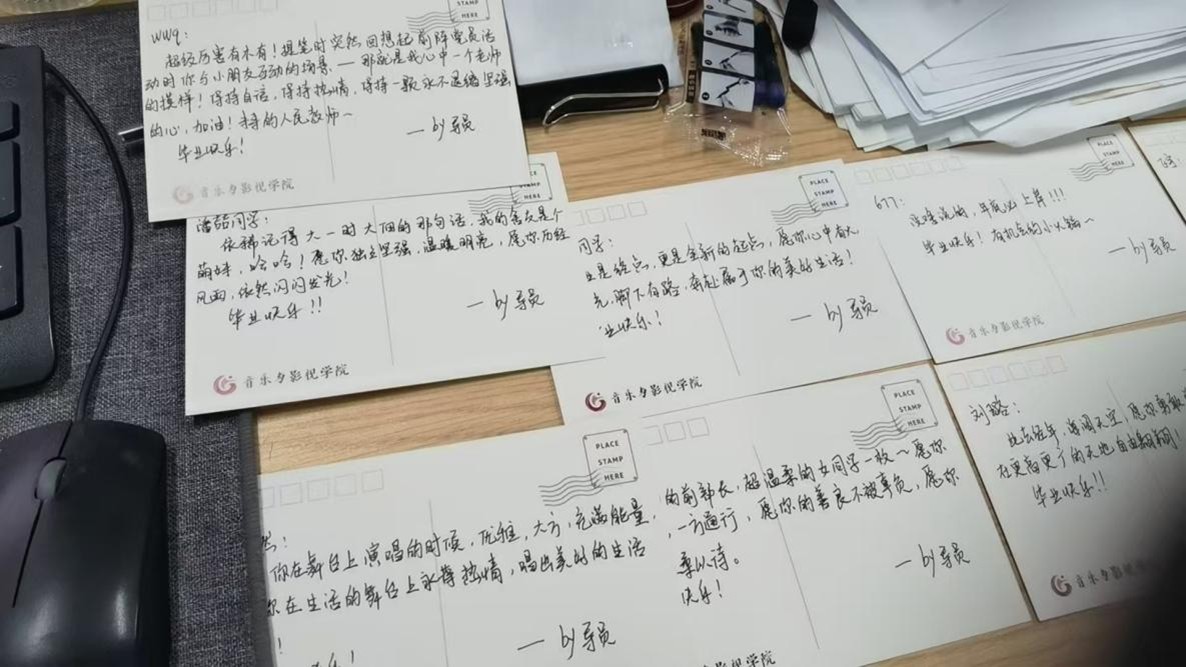 PLACE
STAMP
HERE
wwq:
超级厉害有木有！提笔时突然回想起前阵党员活
动时你与小朋友互动的场景.—那就是我心中一个老师
的模样！保持自信，保持热情，保持一颗永不退缩坚强
的心，加油！未来的人民教师~
毕业快乐！
—by导员
音乐与影视学院
HERE
同学：
依稀记得大一时大佃的那句话，我的舍友是个
萌妹，哈哈！愿你独立坚强，温暖明亮，愿你历经
风雨，依然闪闪发光！
毕业快乐！！
—by导员
音乐与影视学院
PLACE
STAMP
HERE
同学：
业是终点，更是全新的起点，愿你心中有火
光，脚下有路，奔赴属于你的美好生活！
业快乐！
—by导员
音乐与影视学院
PLACE
STAMP
HERE
677:
没啥说的，年底必上岸!!!
毕业快乐！有机会约小火锅~
—by导员
音乐与影视学院
PLACE
STAMP
HERE
然：
你在舞台上演唱的时候，优雅，大方，充满能量，
你在生活的舞台上永葆热情，唱出美好的生活
！
—by导员
PLACE
STAMP
HERE
的前部长，超温柔的女同学一枚~愿你
一方通行，愿你的善良不被辜负，愿你
柔以待。
快乐！
—by导员
音乐与影视学院
刘璐：
此去经年，海阔天空，愿你勇敢
在更高更广的天地自由翱翔！
毕业快乐!!
音乐与影视学院